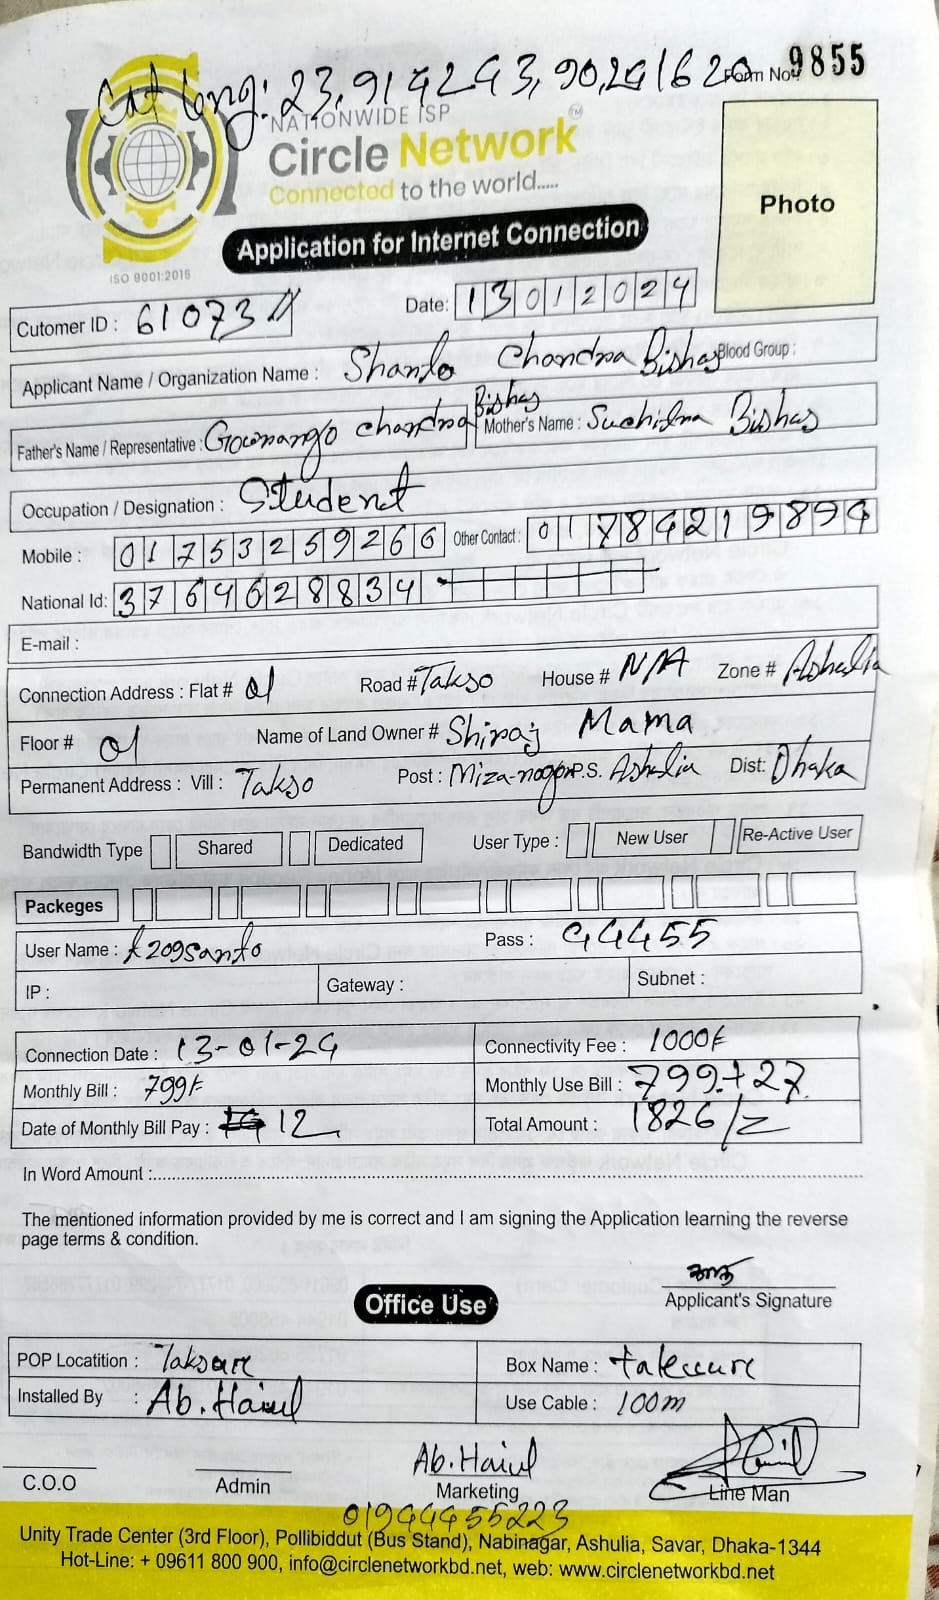 Lat Long: 23,914243, 90,241620
Form No# 9855
NATIONWIDE ISP
Circle Network TM
Connected to the world.....
Photo
Application for Internet Connection
ISO 9001:2015
Cutomer ID : 61073 Date: 13012024
Applicant Name / Organization Name : Shanto Chandra Bishas Blood Group :
Father's Name / Representative : Gowrango chandra Bishas Mother's Name : Suchitra Bishas
Occupation / Designation : Student
Mobile : 01753259266 Other Contact : 01784219894
National Id: 3764628834
E-mail :
Connection Address : Flat # 01 Road # Takso House # N/A Zone # Ashulia
Floor # 01 Name of Land Owner # Shiraj Mama
Permanent Address : Vill : Takso Post : Miza-nogor P.S. Ashulia Dist: Dhaka
Bandwidth Type Shared Dedicated User Type : New User Re-Active User
Packeges
User Name : A209santo Pass : 44455
IP : Gateway : Subnet :
Connection Date : 13-01-24 Connectivity Fee : 1000/-
Monthly Bill : 799/- Monthly Use Bill : 799+27
Date of Monthly Bill Pay : 12 Total Amount : 1826/=
In Word Amount :
The mentioned information provided by me is correct and I am signing the Application learning the reverse
page terms & condition.
Applicant's Signature
Office Use
POP Locatition : Taksure Box Name : taksure
Installed By : Ab. Haiul Use Cable : 100m
Ab. Haiul
C.O.O Admin Marketing Line Man
01944455223
Unity Trade Center (3rd Floor), Pollibiddut (Bus Stand), Nabinagar, Ashulia, Savar, Dhaka-1344
Hot-Line: + 09611 800 900, info@circlenetworkbd.net, web: www.circlenetworkbd.net